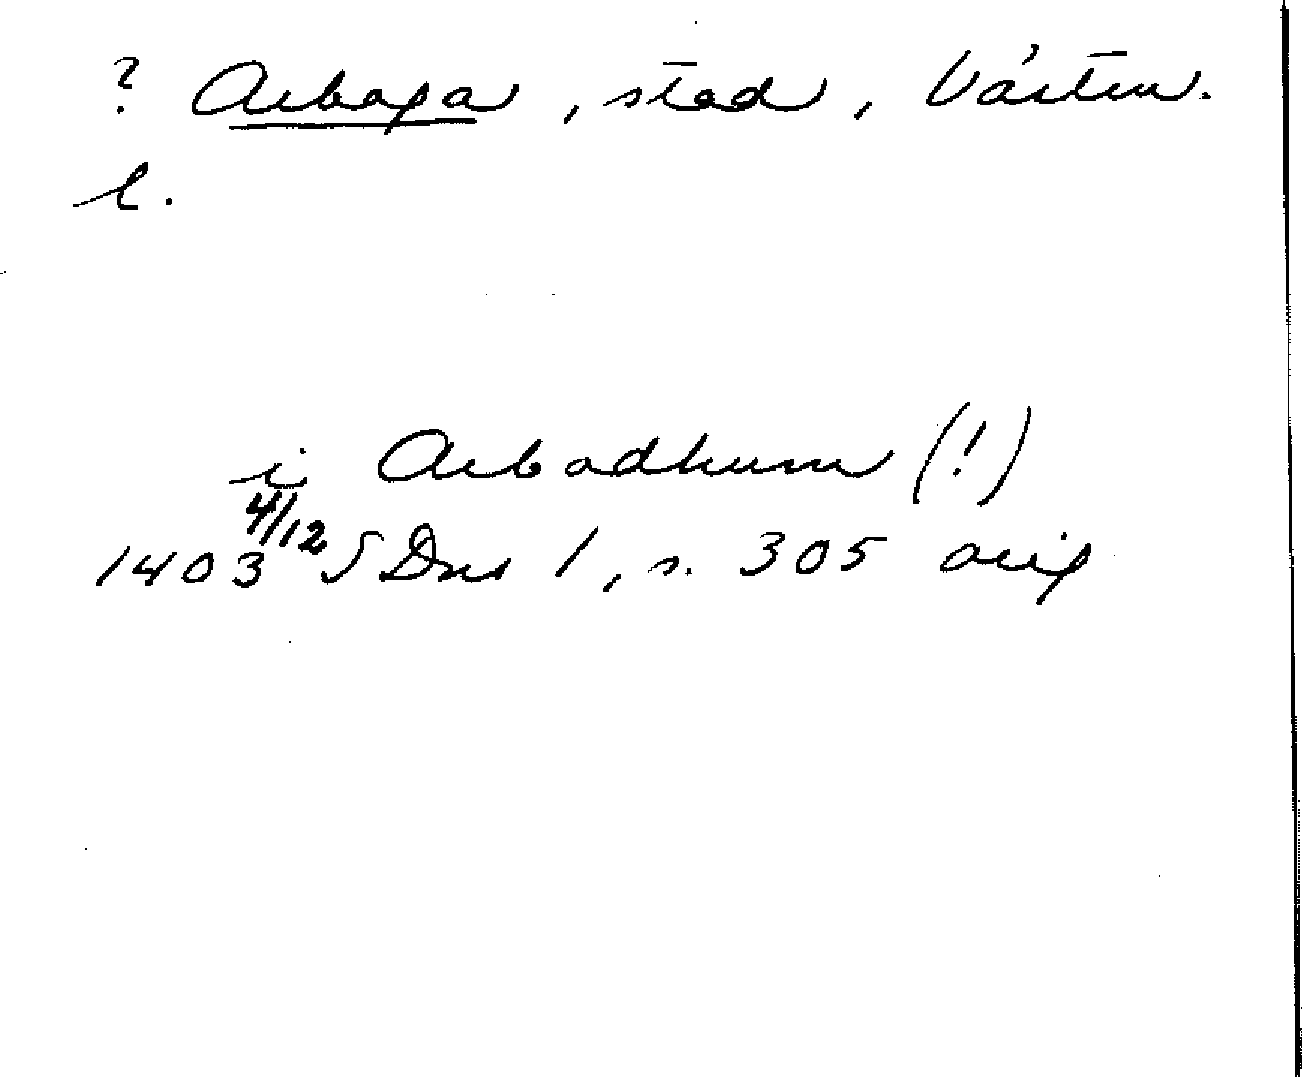 ? Arboga, stad, Västm.
l.
i Arbodhum (!)
1403 4/12 SDns 1, s. 305 orig